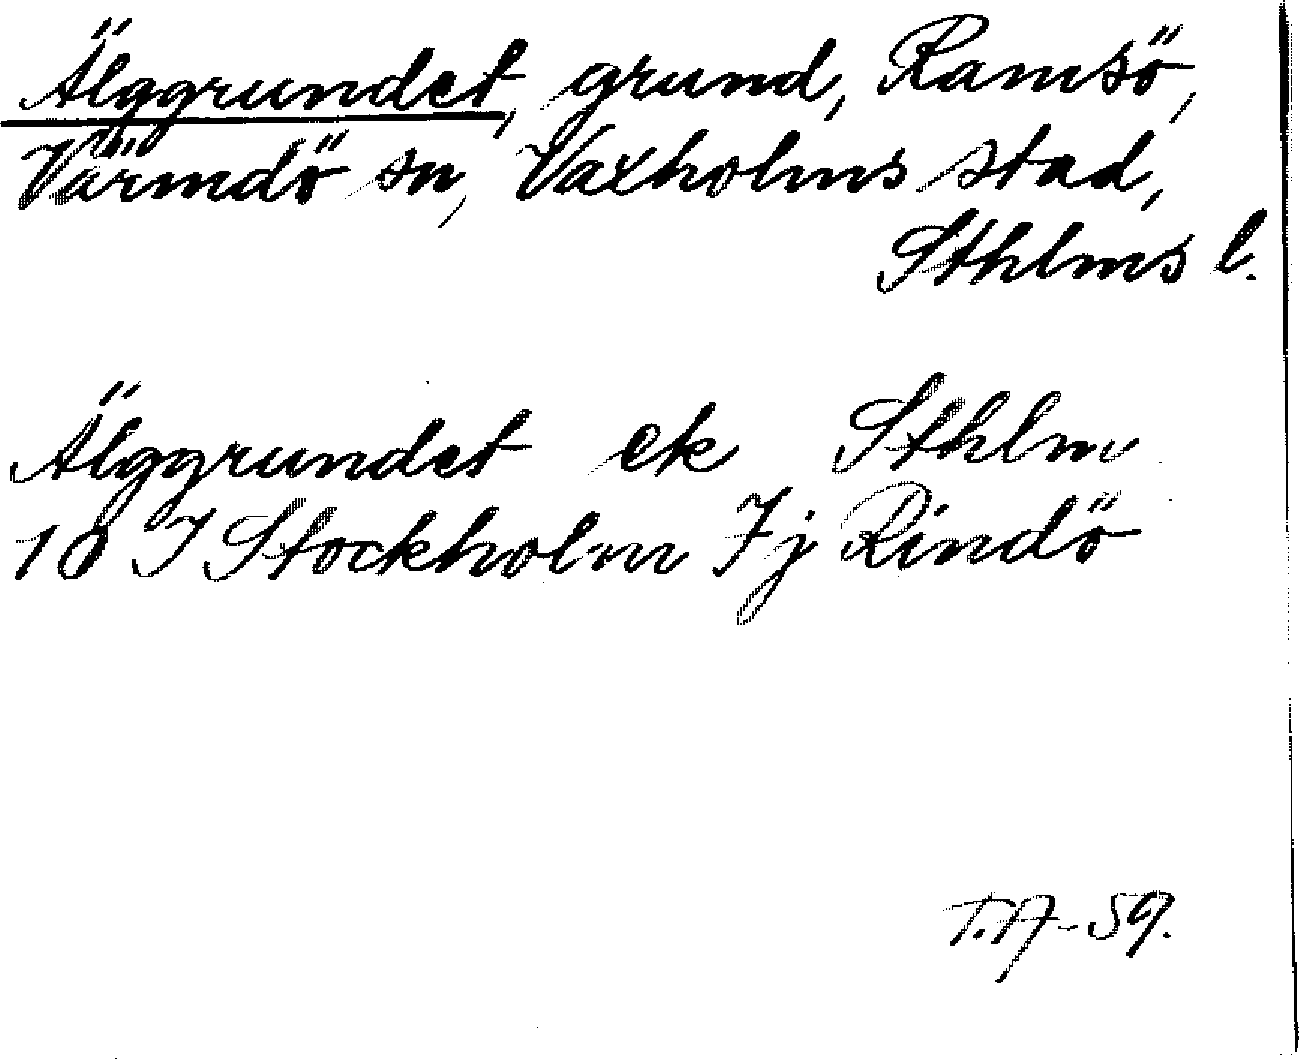 Älggrundet, grund, Ramsö,
Värmdö sn, Vaxholms stad,
Sthlms l.
Älggrundet ek Sthlm
10 I Stockholm 7j Rindö
T.A-59.